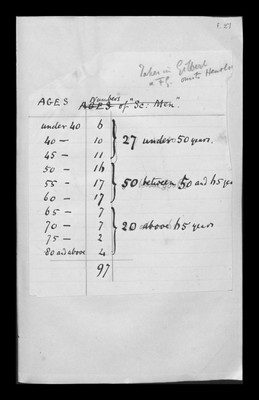 f. 87
Taken in Gilbert
AGES Numbers
AGES of "Sc: Men"
under 40 6
40 — 10
45 — 11
27 under 50 years.
50 — 16
55 — 17
60 — 17
50 between 50 and 65 yea
65 — 7
70 — 7
75 — 2
80 and above 4
20 above 65 years
97